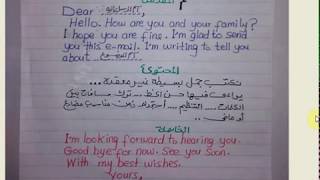 Dear ....................,
Hello. How are you and your family?
I hope you are fine. I'm glad to send
you this e-mail. I'm writing to tell you
about ....................
المحتوى
نكتب جمل بسيطة غير معقدة
يراعى فيها حسن الخط
الكلمات
أو ماضى
الخاتمة
I'm looking forward to hearing you.
Good bye for now. See you soon.
With my best wishes.
Yours,